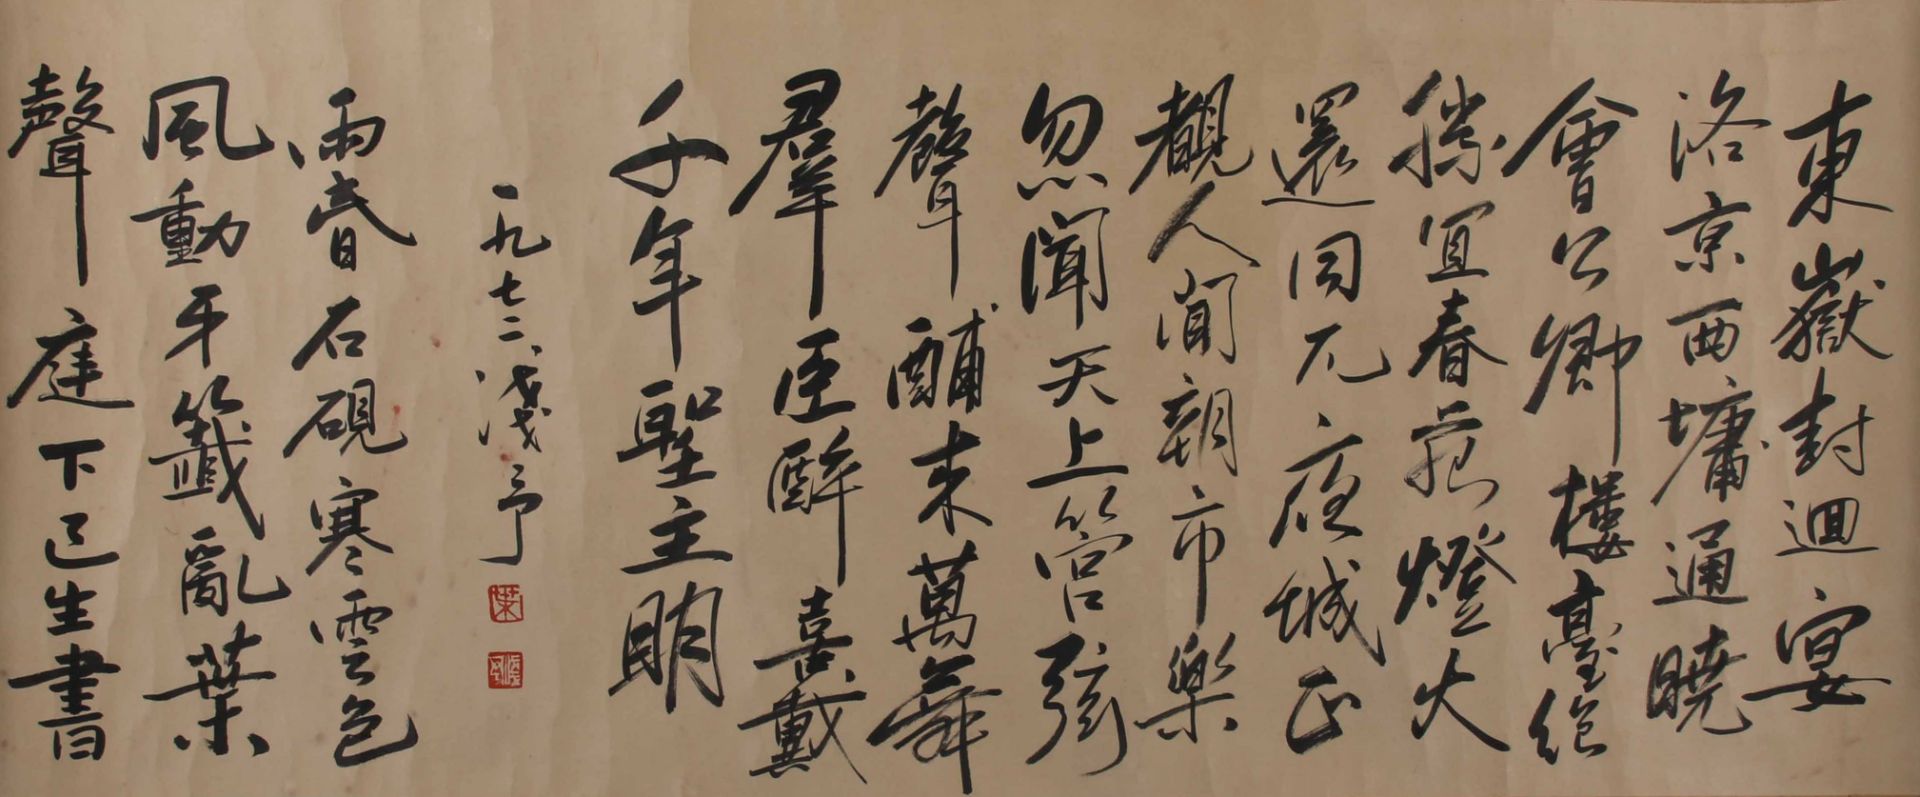 東嶽封迴宴
洛京西墉通曉
會公卿樓臺絕
勝宜春苑燈火
還同不夜城正
觀人間朝市樂
忽聞天上管弦
聲酺來萬舞
羣臣醉喜戴
千年聖主明
一九七二淺予
葉
淺予
雨舂石硯寒雲色
風動牙籤亂葉
聲 庭下已生書